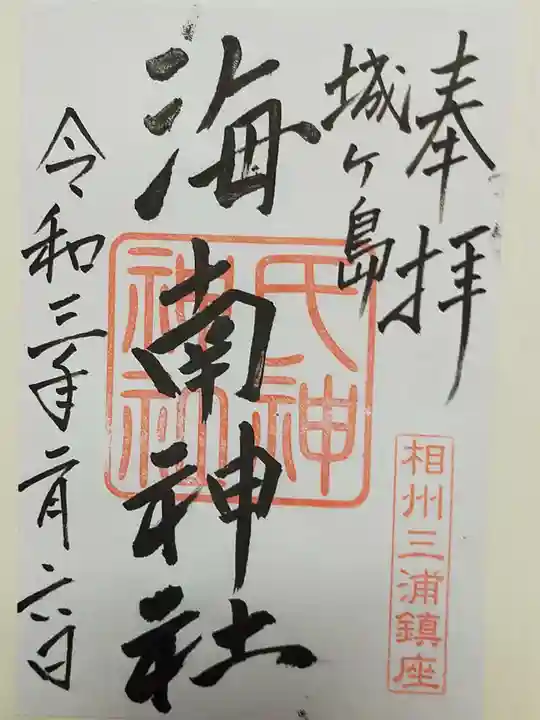 奉拝
城ヶ島
海南神社
氏神
神社
相州三浦鎮座
令和三年二月二六日